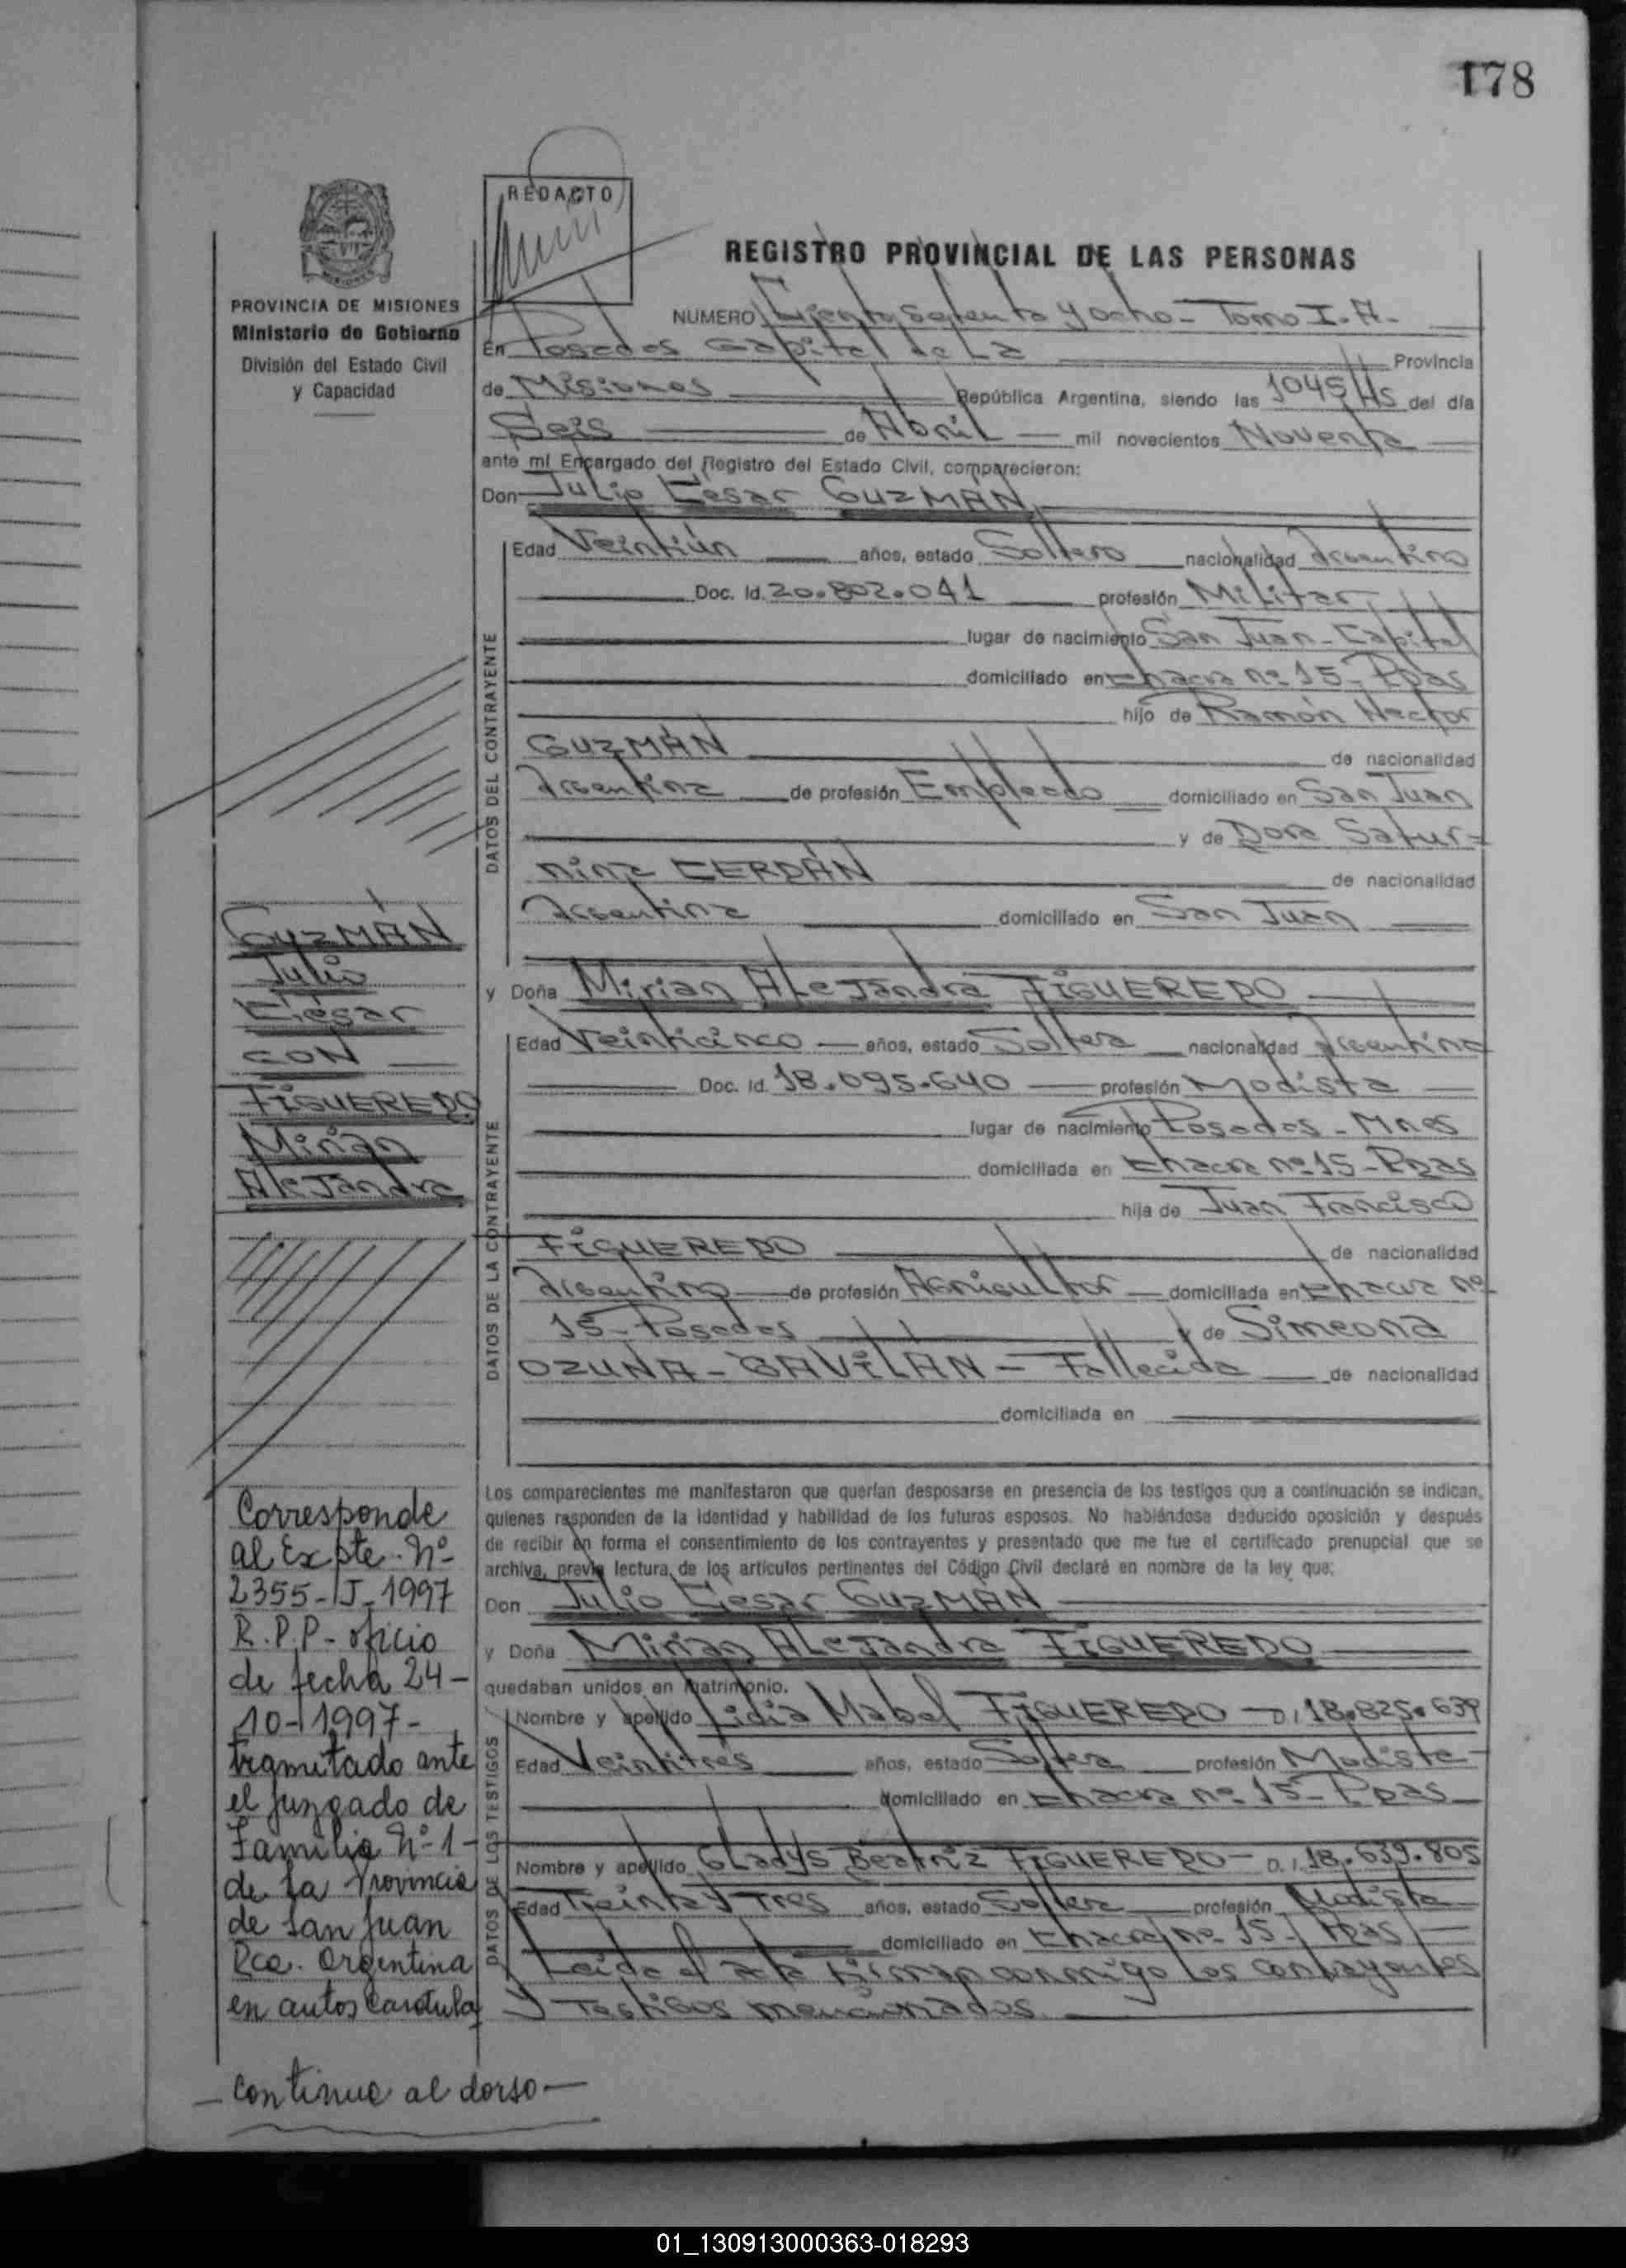 178
REDACTO
REGISTRO PROVINCIAL DE LAS PERSONAS
PROVINCIA DE MISIONES
Ministerio de Gobierno
División del Estado Civil
y Capacidad
NUMERO Ciento Setenta y Ocho - Tomo I - A -
En Posadas Capital de La Provincia
de Misiones República Argentina, siendo las 1045 Hs del día
Seis de Abril mil novecientos Noventa
ante mí Encargado del Registro del Estado Civil, comparecieron:
Don Julio César GUZMÁN
DATOS DEL CONTRAYENTE
Edad Veintiún años, estado Soltero nacionalidad Argentino
Doc. Id. 20.802.041 profesión Militar
lugar de nacimiento San Juan - Capital
domiciliado en Chacra nº 15 - Pdas
hijo de Ramón Hector
GUZMÁN de nacionalidad
Argentina de profesión Empleado domiciliado en San Juan
y de Dora Satur=
nina CERDÁN de nacionalidad
Argentina domiciliado en San Juan
GUZMÁN
Julio
César
CON
FIGUEREDO
Mirian
Alejandra
y Doña Mirian Alejandra FIGUEREDO
DATOS DE LA CONTRAYENTE
Edad Veinticinco años, estado Soltera nacionalidad Argentina
Doc. Id. 18.095.640 profesión Modista
lugar de nacimiento Posadas - Mnes
domiciliada en Chacra nº 15 - Pdas
hija de Juan Francisco
FIGUEREDO de nacionalidad
Argentino de profesión Agricultor domiciliada en Chacra nº
15 - Posadas y de Simeona
OZUNA - GAVILÁN - Fallecida de nacionalidad
domiciliada en
Los comparecientes me manifestaron que querían desposarse en presencia de los testigos que a continuación se indican,
quienes responden de la identidad y habilidad de los futuros esposos. No habiéndose deducido oposición y después
de recibir en forma el consentimiento de los contrayentes y presentado que me fue el certificado prenupcial que se
archiva, previa lectura de los artículos pertinentes del Código Civil declaré en nombre de la ley que:
Don Julio César GUZMÁN
y Doña Mirian Alejandra FIGUEREDO
quedaban unidos en matrimonio.
DATOS DE LOS TESTIGOS
Nombre y apellido Lidia Mabel FIGUEREDO - D.I 18.825.639
Edad Veintitres años, estado Soltera profesión Modista
domiciliado en Chacra nº 15 - Pdas
Nombre y apellido Gladys Beatriz FIGUEREDO - D.I. 18.639.805
Edad Treinta y Tres años, estado Soltera profesión Modista
domiciliado en Chacra nº 15 - Pdas
Leida el acta firman conmigo los contrayentes
y Testigos mencionados
Corresponde
al Expte. Nº
2355-J-1997
R.P.P - oficio
de fecha 24-
10-1997-
tramitado ante
el juzgado de
Familia Nº 1-
de la Provincia
de San Juan
Rca. Argentina
en autos Caratula
- Continua al dorso -
01_130913000363-018293